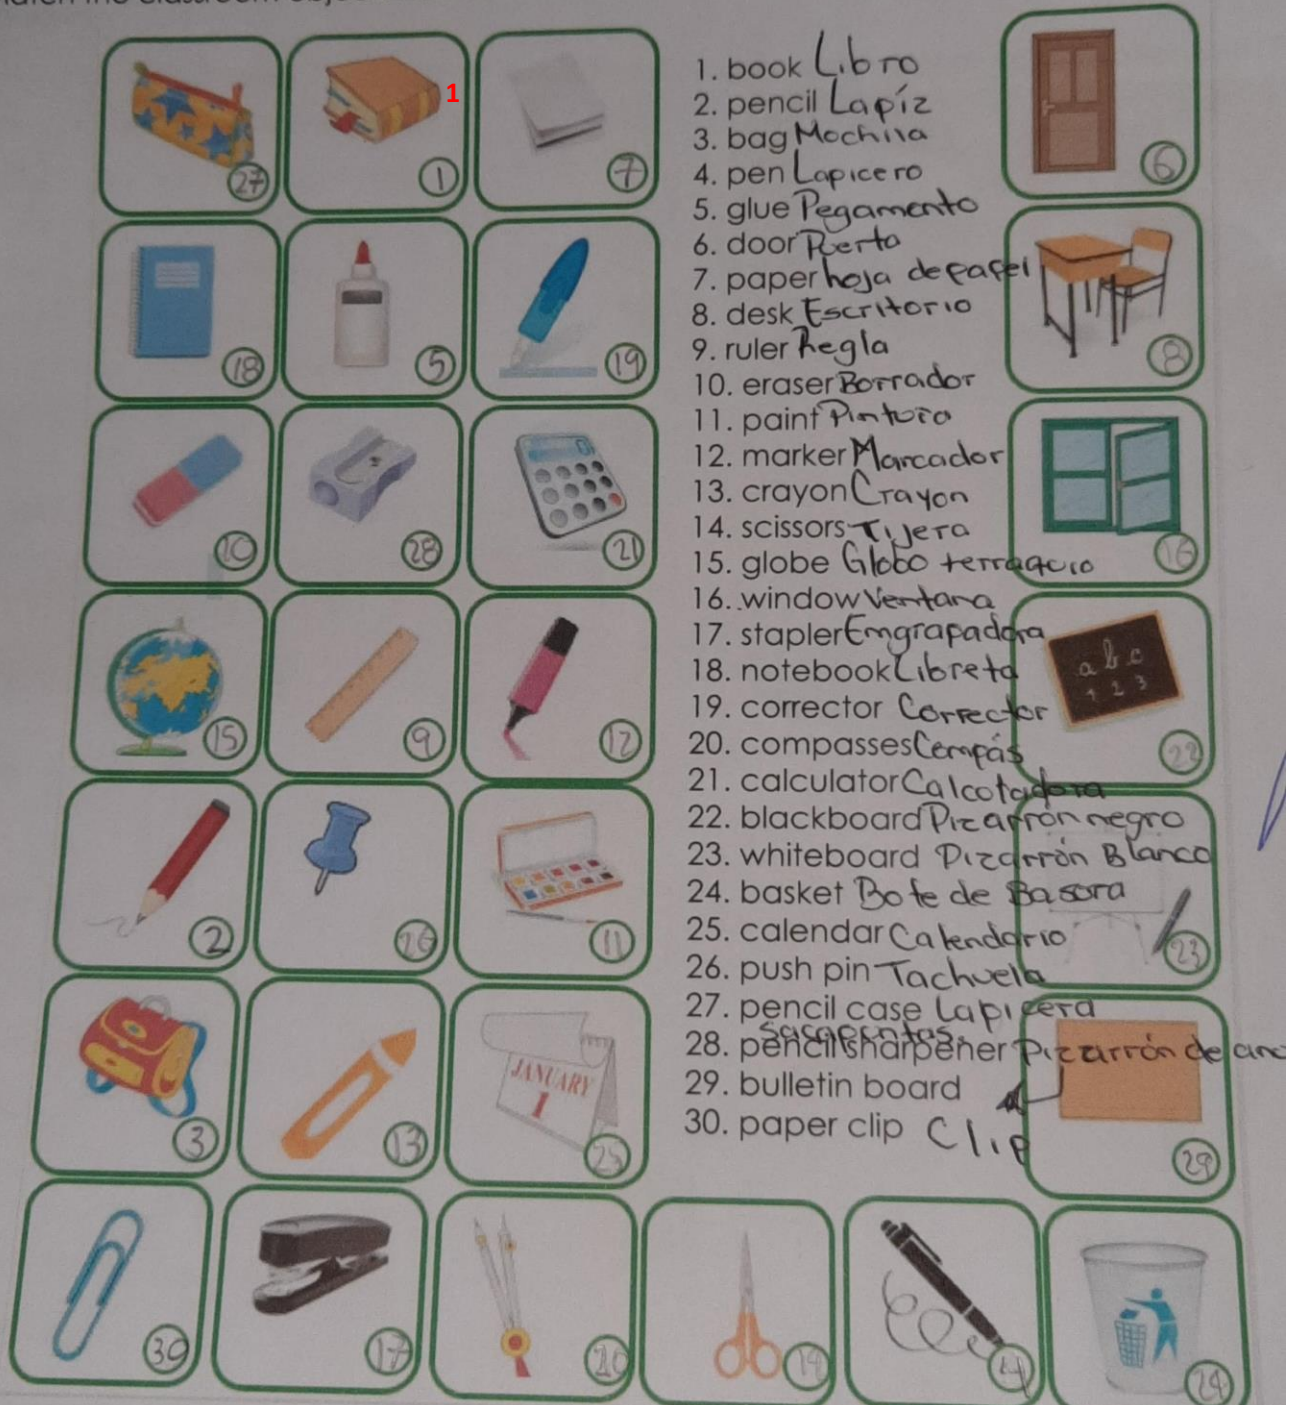 27
1
1
7
18
5
19
10
28
21
15
9
12
2
26
11
3
13
JANUARY
1
25
1. book Libro
2. pencil Lapíz
3. bag Mochila
4. pen Lapicero
5. glue Pegamento
6. door Puerta
7. paper hoja de papel
8. desk Escritorio
9. ruler Regla
10. eraser Borrador
11. paint Pintura
12. marker Marcador
13. crayon Crayon
14. scissors Tijera
15. globe Globo terraqcio
16. window Ventana
17. stapler Emgrapadora
18. notebook Libreta
19. corrector Corrector
20. compasses Compás
21. calculator Calcotadora
22. blackboard Pizarrón negro
23. whiteboard Pizarrón Blanco
24. basket Bote de Basora
25. calendar Calendario
26. push pin Tachuela
27. pencil case Lapicera
28. pencil sharpener Pizarrón de
29. bulletin board
30. paper clip Clip
6
8
16
a b c
1 2 3
22
23
29
30
17
20
14
4
24